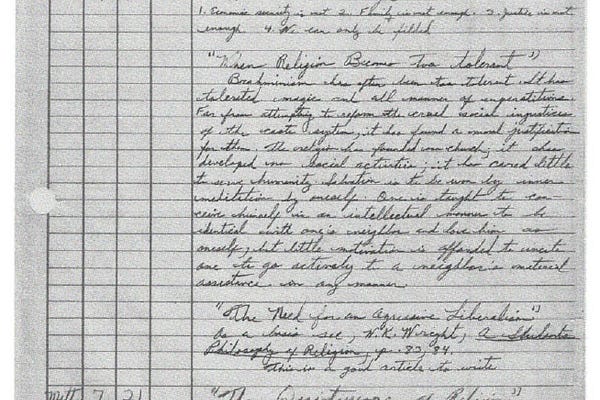 1. Economic security is not 2. Family is not enough. 3. Justice is not
enough 4. We can only be filled
"When Religion Becomes Too tolerant"
Brahminism has often been too tolerant. It has
tolerated magic and all manner of superstitions.
Far from attempting to reform the cruel social injustices
of the caste system, it has found a moral justification
for them. The religion has founded no church; it has
developed no social activities; it has cared little
to serve humanity. Salvation is to be won by inner
meditation by oneself. One is taught to con-
ceive himself in an intellectual manner to be
identical with one's neighbor and love him as
oneself; but little motivation is afforded to incite
one to go actively to a neighbor's material
assistance in any manner.
"The Need for an Agressive Liberalism"
As a basis see, W.K. Wright, A Students
Philosophy of Religion, p. 83, 84.
This is a good article to write
Matt 7 21 "The of Religion"